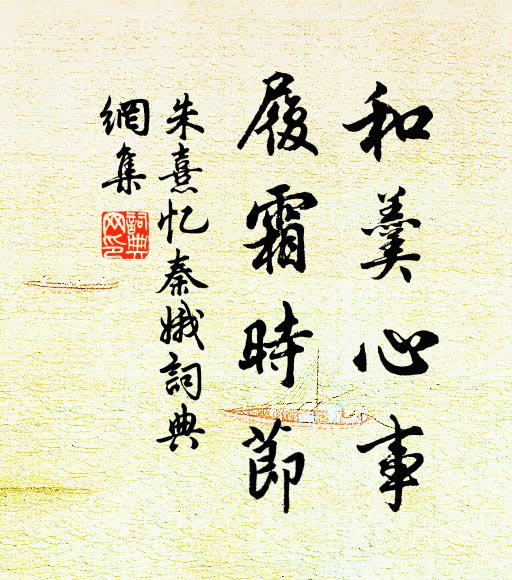 和羹心事
履霜時節
朱熹忆秦娥詞典
網集
詞典
网印